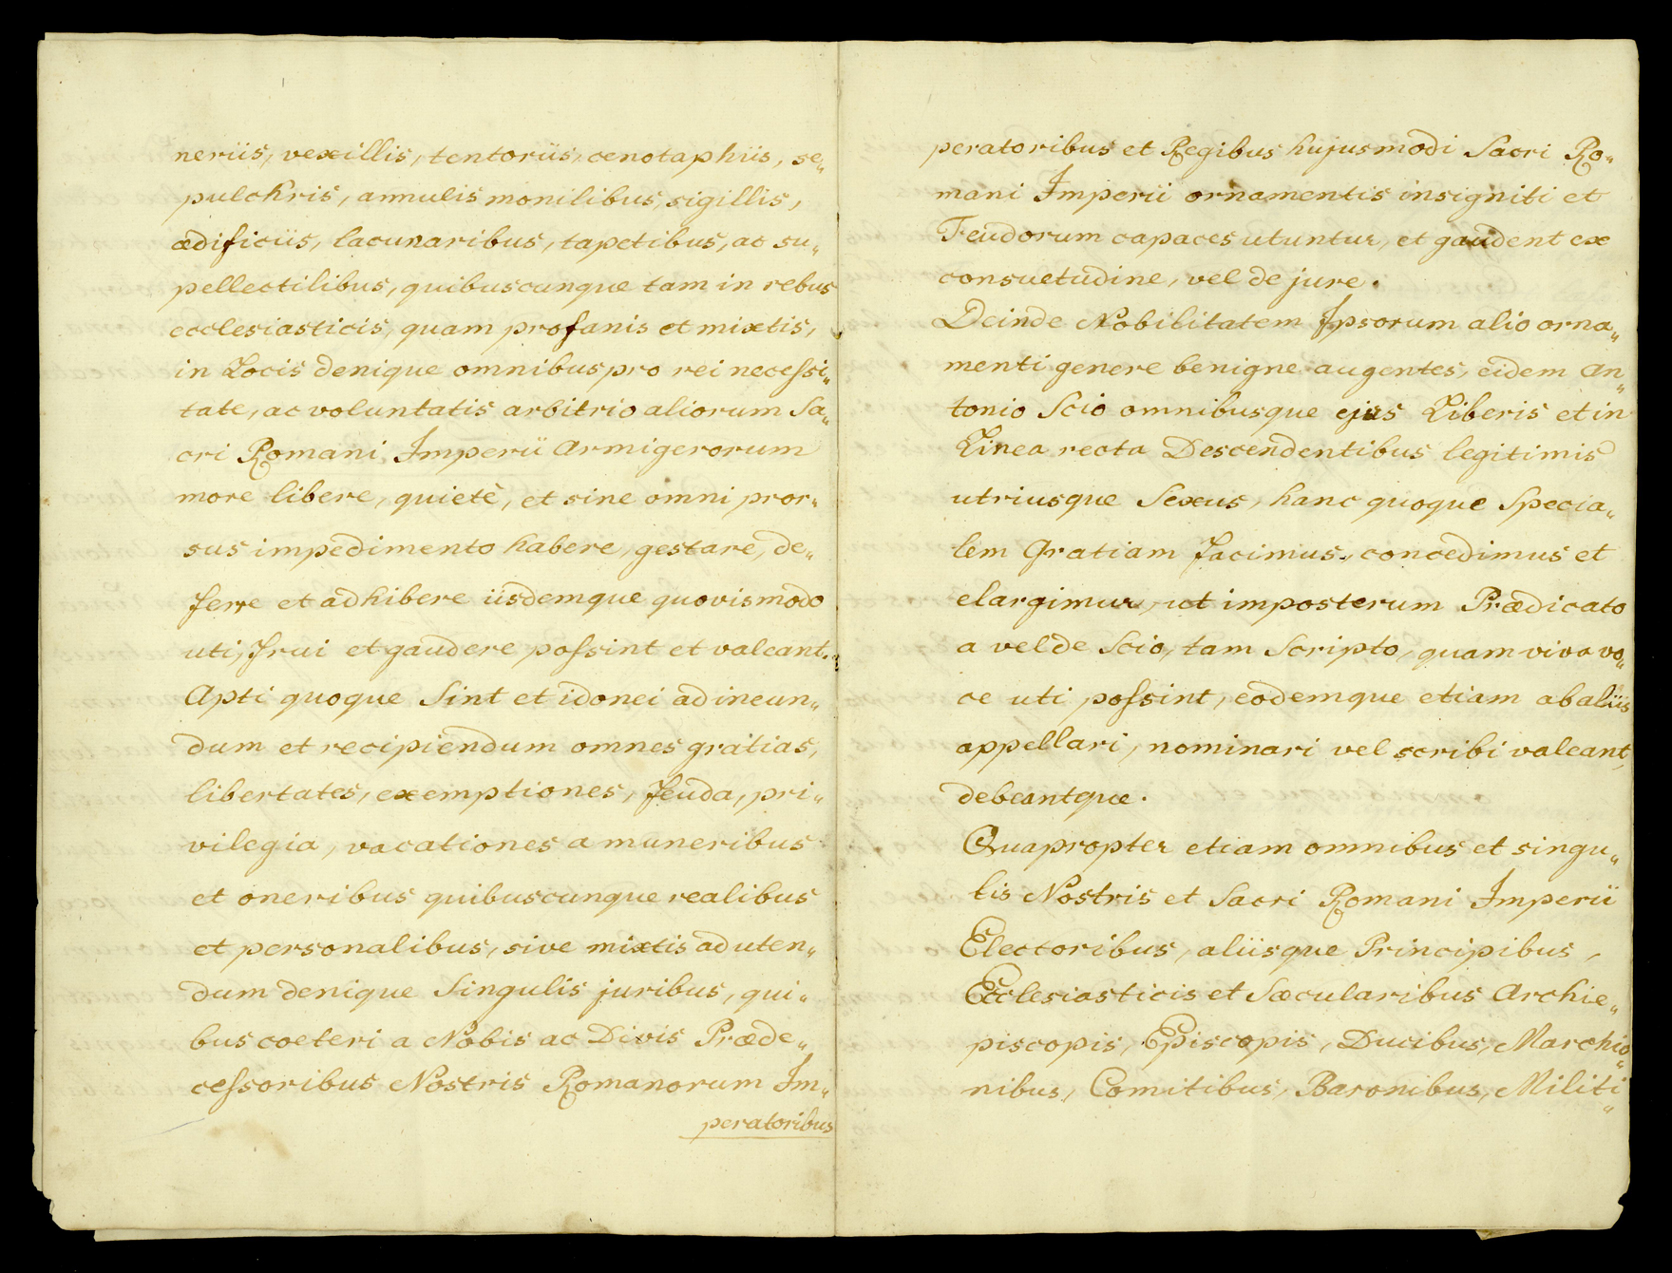 neriis, vexillis, tentoriis, cenotaphiis, se„
pulchris, annulis monilibus, sigillis,
ædificiis, lacunaribus, tapetibus, ac su„
pellectilibus, quibuscunque tam in rebus
ecclesiasticis, quam profanis et mixtis,
in Locis denique omnibus pro rei necessi„
tate, ac voluntatis arbitrio aliorum Sa„
cri Romani Imperii Armigerorum
more libere, quietè, et sine omni pror„
sus impedimento habere, gestare, de„
ferre et adhibere iisdemque quovismodo
uti, frui et gaudere possint et valeant.
Apti quoque Sint et idonei ad ineun„
dum et recipiendum omnes gratias,
libertates, exemptiones, feuda, pri„
vilegia, vacationes a muneribus
et oneribus quibuscunque realibus
et personalibus, sive mixtis ad uten„
dum denique Singulis juribus, qui„
bus coeteri a Nobis ac Divis Præde„
cessoribus Nostris Romanorum Im„
peratoribus
peratoribus et Regibus hujusmodi Sacri Ro„
mani Imperii ornamentis insigniti et
Feudorum capaces utuntur, et gaudent ex
consuetudine, vel de jure.
Deinde Nobilitatem Ipsorum alio orna„
menti genere benigne augentes, eidem An„
tonio Scio omnibusque ejus Liberis et in
Linea recta Descendentibus legitimis
utriusque Sexus, hanc quoque Specia„
lem Gratiam facimus, concedimus et
elargimur, ut imposterum Prædicato
a vel de Scio, tam Scripto, quam viva vo„
ce uti possint, eodemque etiam ab aliis
appellari, nominari vel scribi valeant,
debeantque.
Quapropter etiam omnibus et singu„
lis Nostris et Sacri Romani Imperii
Electoribus, aliisque Principibus,
Ecclesiasticis et Sæcularibus Archie„
piscopis, Episcopis, Ducibus, Marchio„
nibus, Comitibus, Baronibus, Militi„